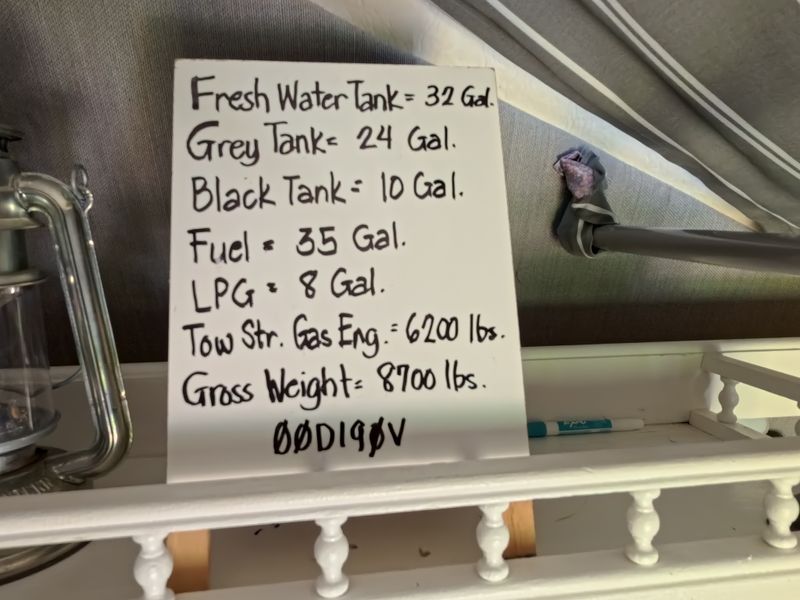 Fresh Water Tank = 32 Gal.
Grey Tank = 24 Gal.
Black Tank = 10 Gal.
Fuel = 35 Gal.
LPG = 8 Gal.
Tow Str. Gas Eng. = 6200 lbs.
Gross Weight = 8700 lbs.
ØØD19ØV